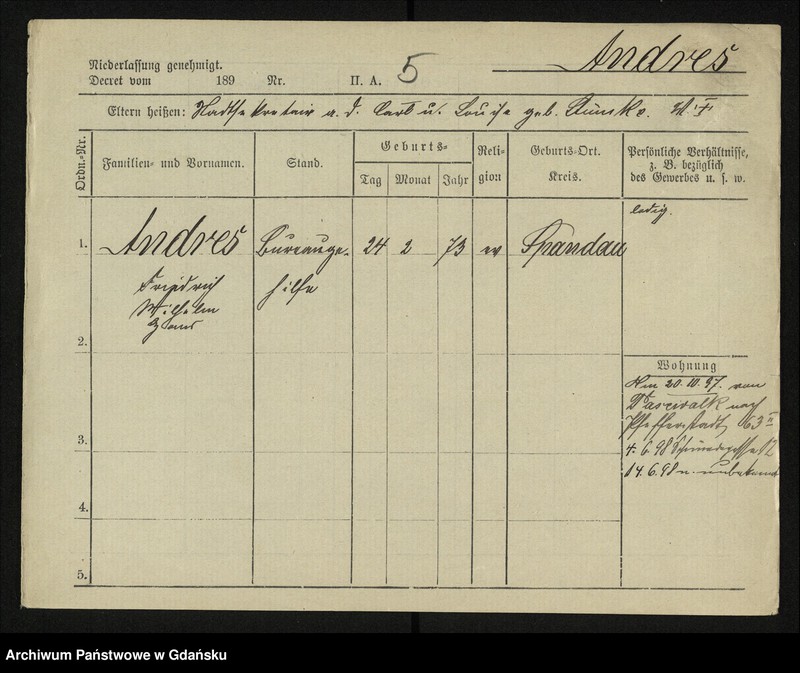 Andres
Niederlassung genehmigt.
Decret vom 189 Nr. II. A. 5
Eltern heißen: Stadtsekretair a. d. Carl u. Louise geb.
Ordn.-Nr.
Familien- und Vornamen.
Stand.
Geburts-
Tag Monat Jahr
Reli-
gion
Geburts-Ort.
Kreis.
Persönliche Verhältnisse,
z. B. bezüglich
des Gewerbes u. s. w.
ledig.
1. Andres Bureauge- 24 2 73 ev Spandau
Friedrich hilfe
Wilhelm
Hans
2.
Wohnung
Am 20.10.97. von
Pasewalk nach
Pfefferstadt 63 II
3.
4.6.98 Schmiedegasse 12
14.6.98 n. unbekannt
4.
5.
Archiwum Państwowe w Gdańsku